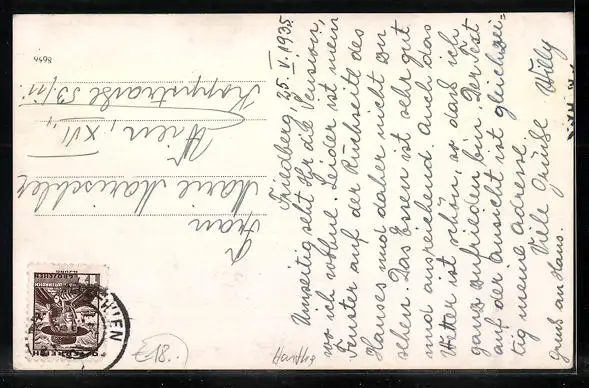 Friedberg 25. V. 1935
Umseitig seht Ihr die Pension,
wo ich wohne. Leider ist mein
Fenster auf der Rückseite des
Hauses und daher nicht zu
sehen. Das Essen ist sehr gut
und ausreichend. Auch das
Wetter ist schön, so dass ich
ganz zufrieden bin. Der Text
auf der Ansicht ist gleichzei=
tig meine Adresse.
Viele Grüße Willy
Gruß an Hans.
Frau
Marie
Wien, XVI.,
Koppstraße 53/11
8656
WIEN
ÖSTERREICH
18.-